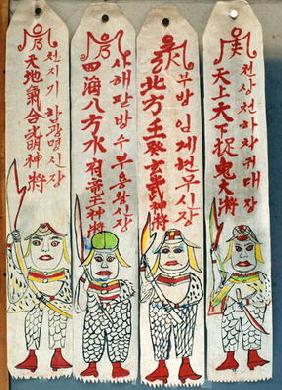 天地氣合光明神將
천지기합광명신장
四海八方水府竜王神將
사해팔방수부용왕신장
北方壬癸玄武神將
북방임계현무신장
天上天下捉鬼大將
천상천하착귀대장